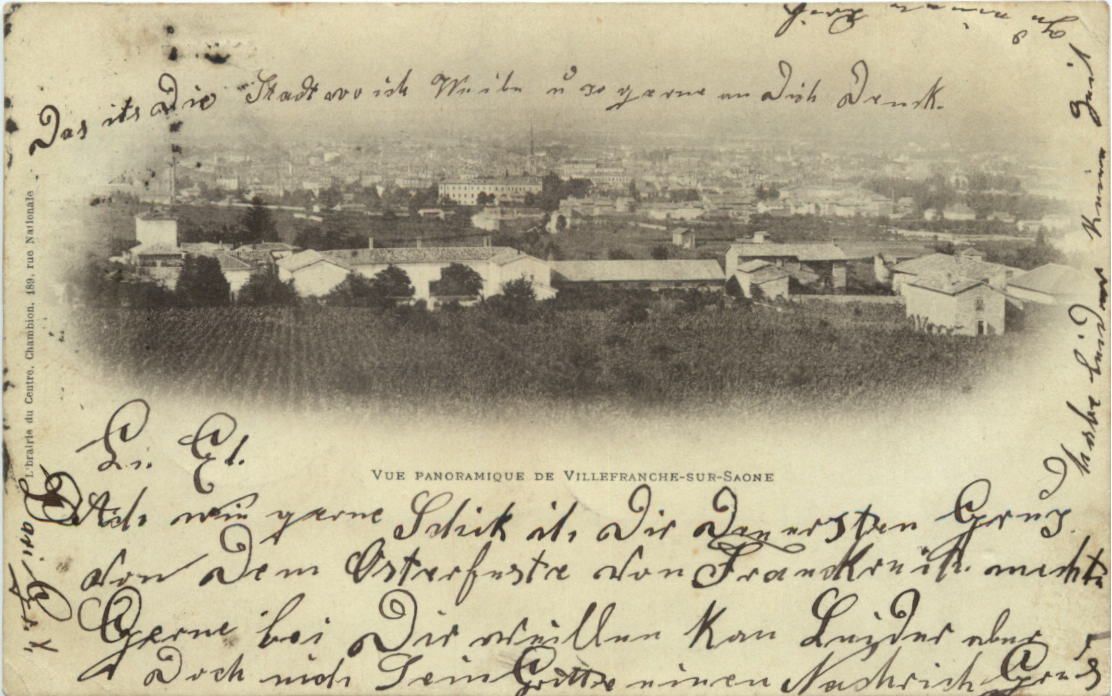 Das its Die Stadt wo ich Weile u so gerne an Dich Denck.
Librairie du Centre, Chambion, 489, rue Nationale
VUE PANORAMIQUE DE VILLEFRANCHE-SUR-SAONE
Li. El.
Ach wie gerne Schick ich Dir Den ersten Grus
von Dem Osterfeste von Franckreich. mechte
Gerne bei Dir weillen Kan Leider aber
Doch nich Sein Bitte einen Nachrich Grus
habe leider keine Zeit